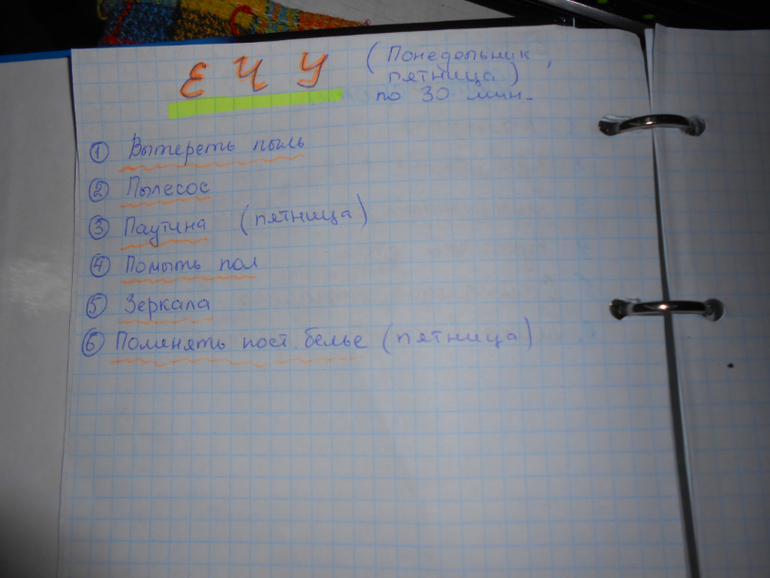 ЕЧУ (Понедельник,
пятница)
по 30 мин.
1 Вытереть пыль
2 Пылесос
3 Паутина (пятница)
4 Помыть пол
5 Зеркала
6 Поменять пост. белье (пятница)